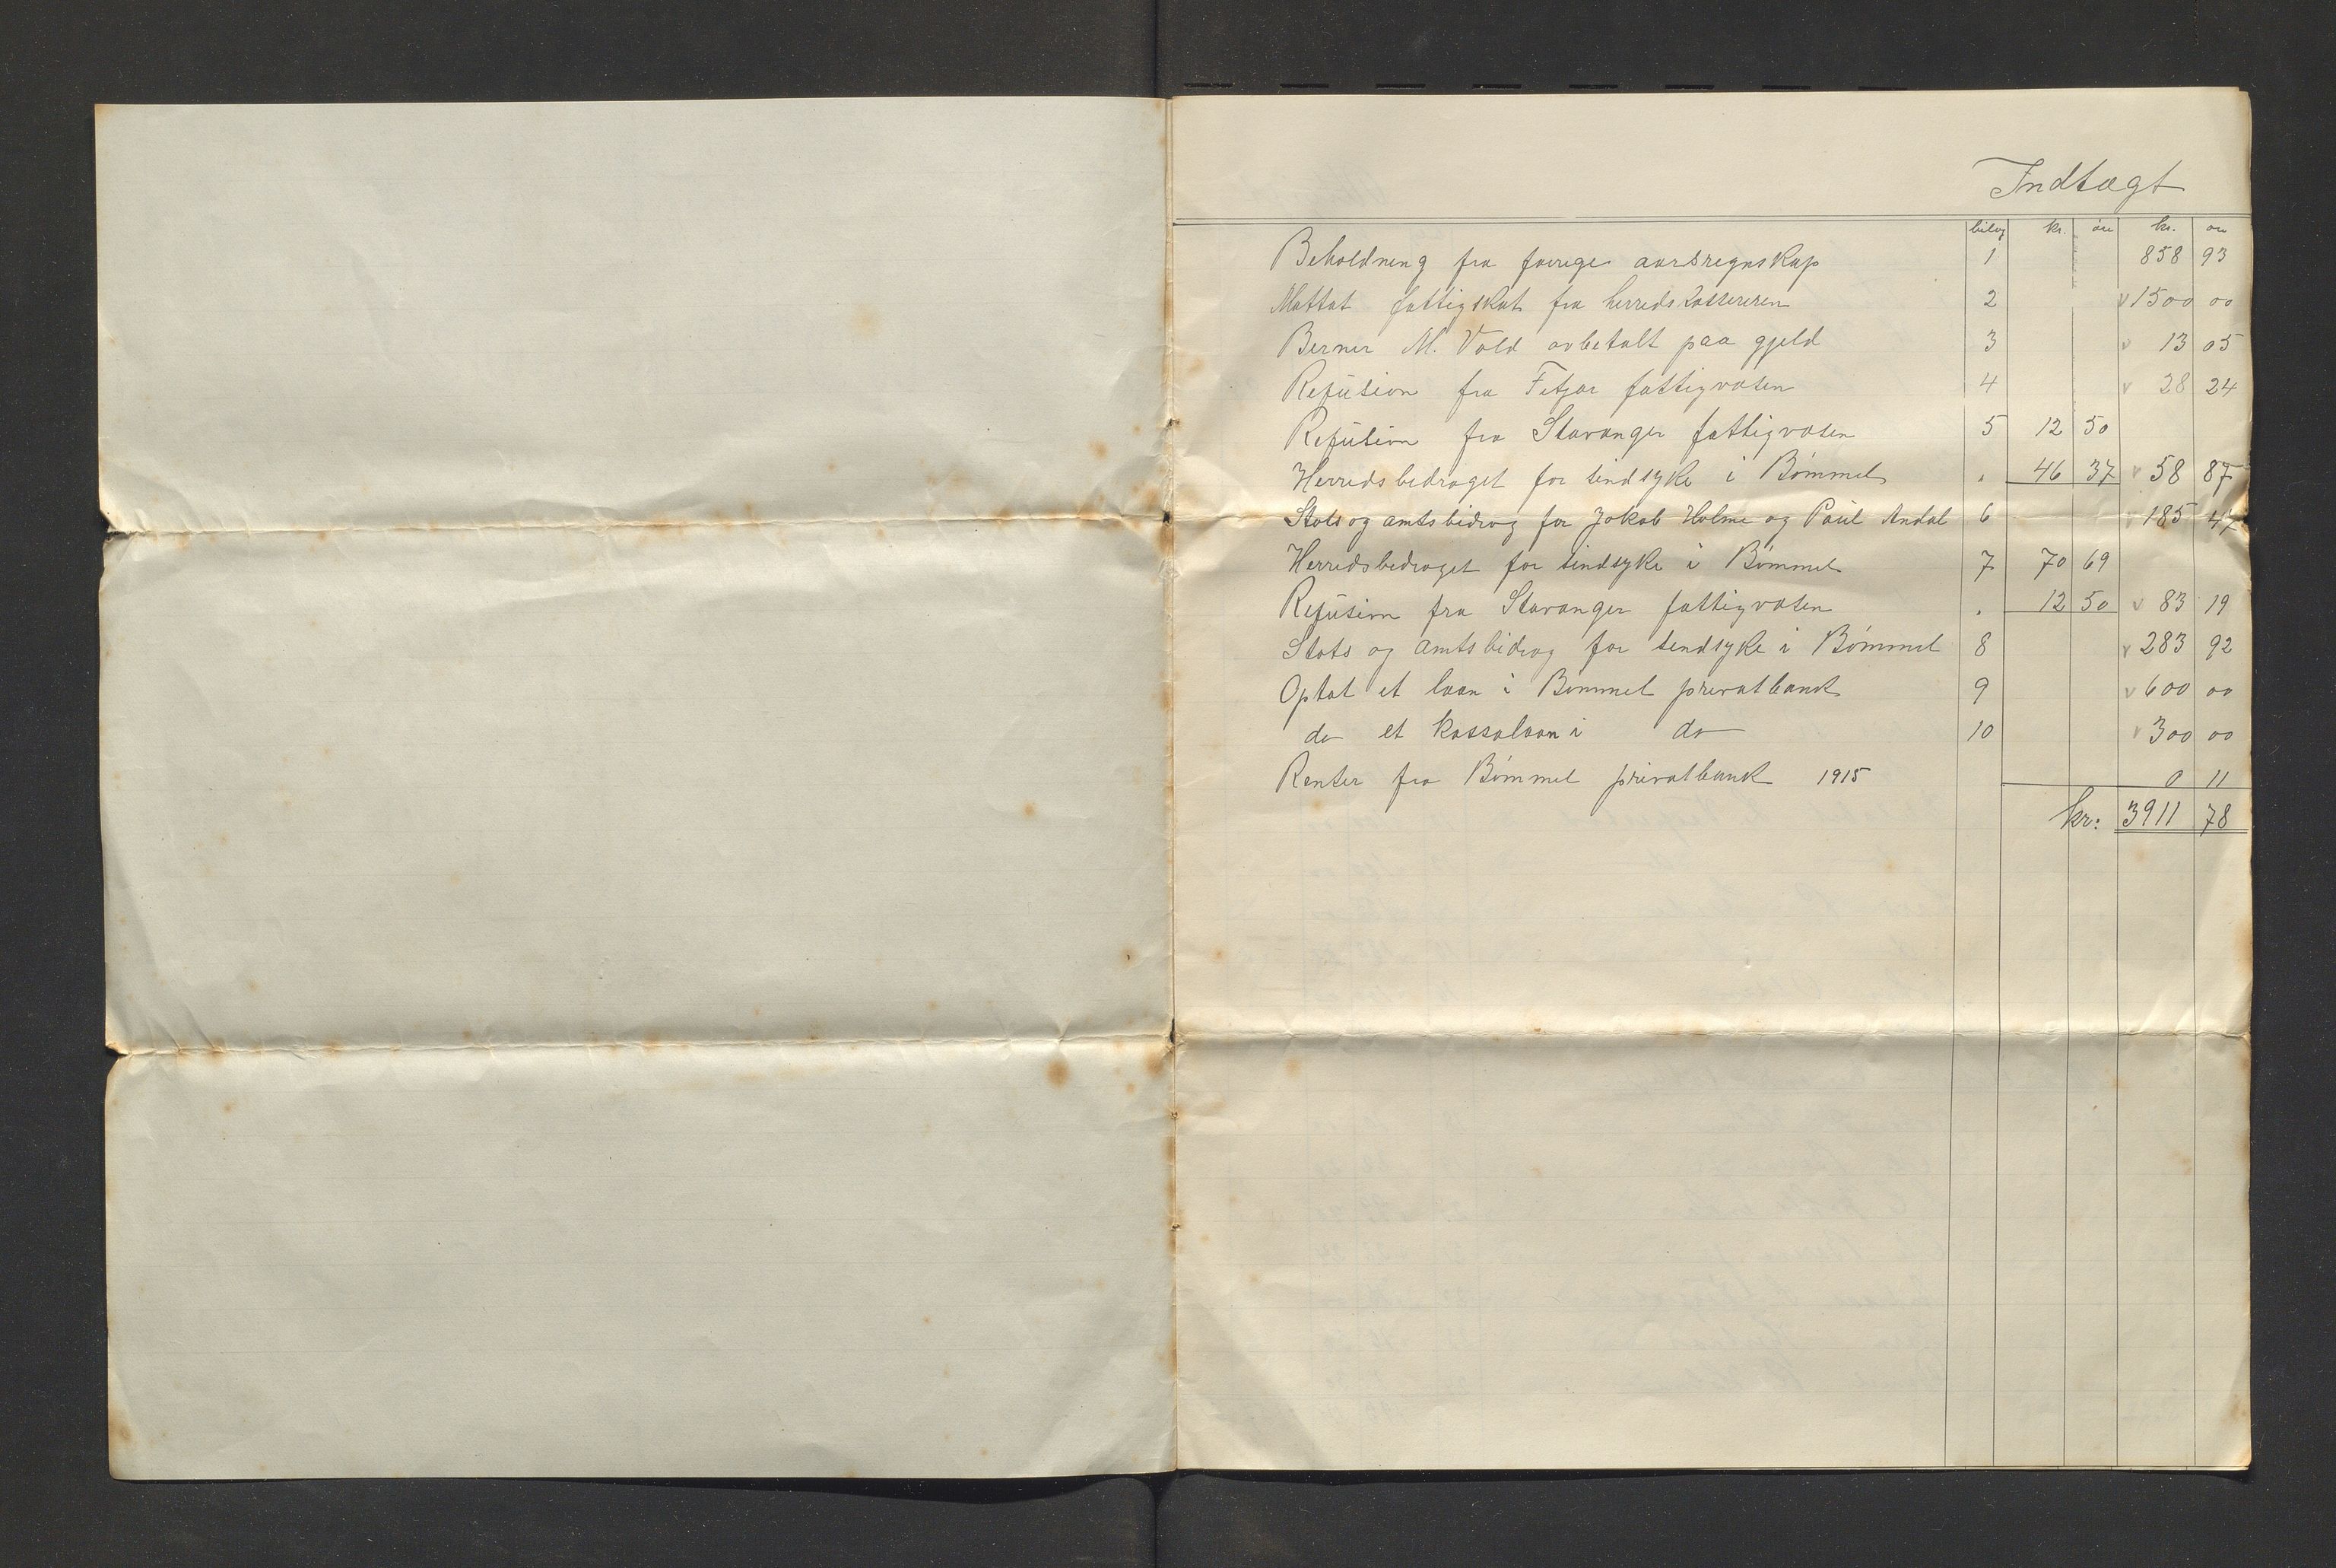 Indtægt
bilag kr. øre kr. øre
Beholdning fra forrige aarsregnskap 1 858 93
Mottat fattigskat fra herredskassereren 2 1500 00
Berner M. Vold avbetalt paa gjeld 3 13 05
Refusion fra Fitjar fattigvæsen 4 28 24
Refusion fra Stavanger fattigvæsen 5 12 50
Herredsbedraget for sindsyke i Bømmel . 46 37 58 87
Stats og amtsbidrag for Jakob Holme og Paul Andal 6 185 47
Herredsbedraget for sindsyke i Bømmel 7 70 69
Refusion fra Stavanger fattigvæsen . 12 50 83 19
Stats og amtsbidrag for sindsyke i Bømmel 8 283 92
Optat et laan i Bømmel privatbank 9 600 00
do et kassalaan i do 10 300 00
Renter fra Bømmel privatbank 1915 0 11
kr: 3911 78